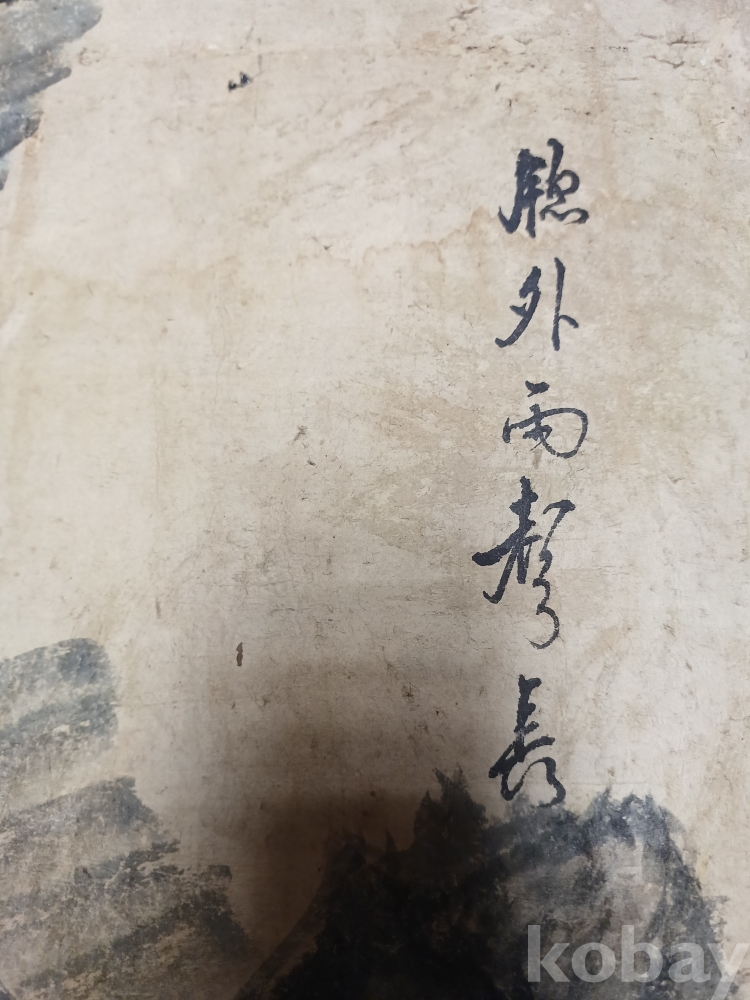 牕外雨聲長
kobay